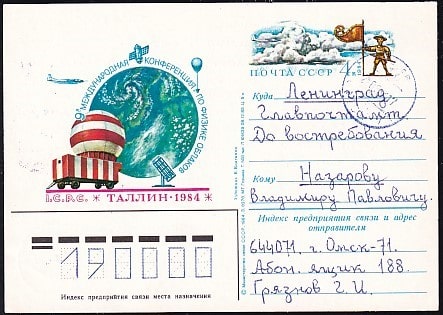 9 МЕЖДУНАРОДНАЯ КОНФЕРЕНЦИЯ ПО ФИЗИКЕ ОБЛАКОВ
I.C.P.C. ТАЛЛИН · 1984
ПОЧТА СССР
1984
Куда Ленинград
Главпочтамт
До востребования
Кому Назарову
Владимиру Павловичу.
Индекс предприятия связи и адрес
отправителя
644071 г. Омск-71.
Абон. ящик 188.
Грязнов Г. И.
190000
Индекс предприятия связи места назначения